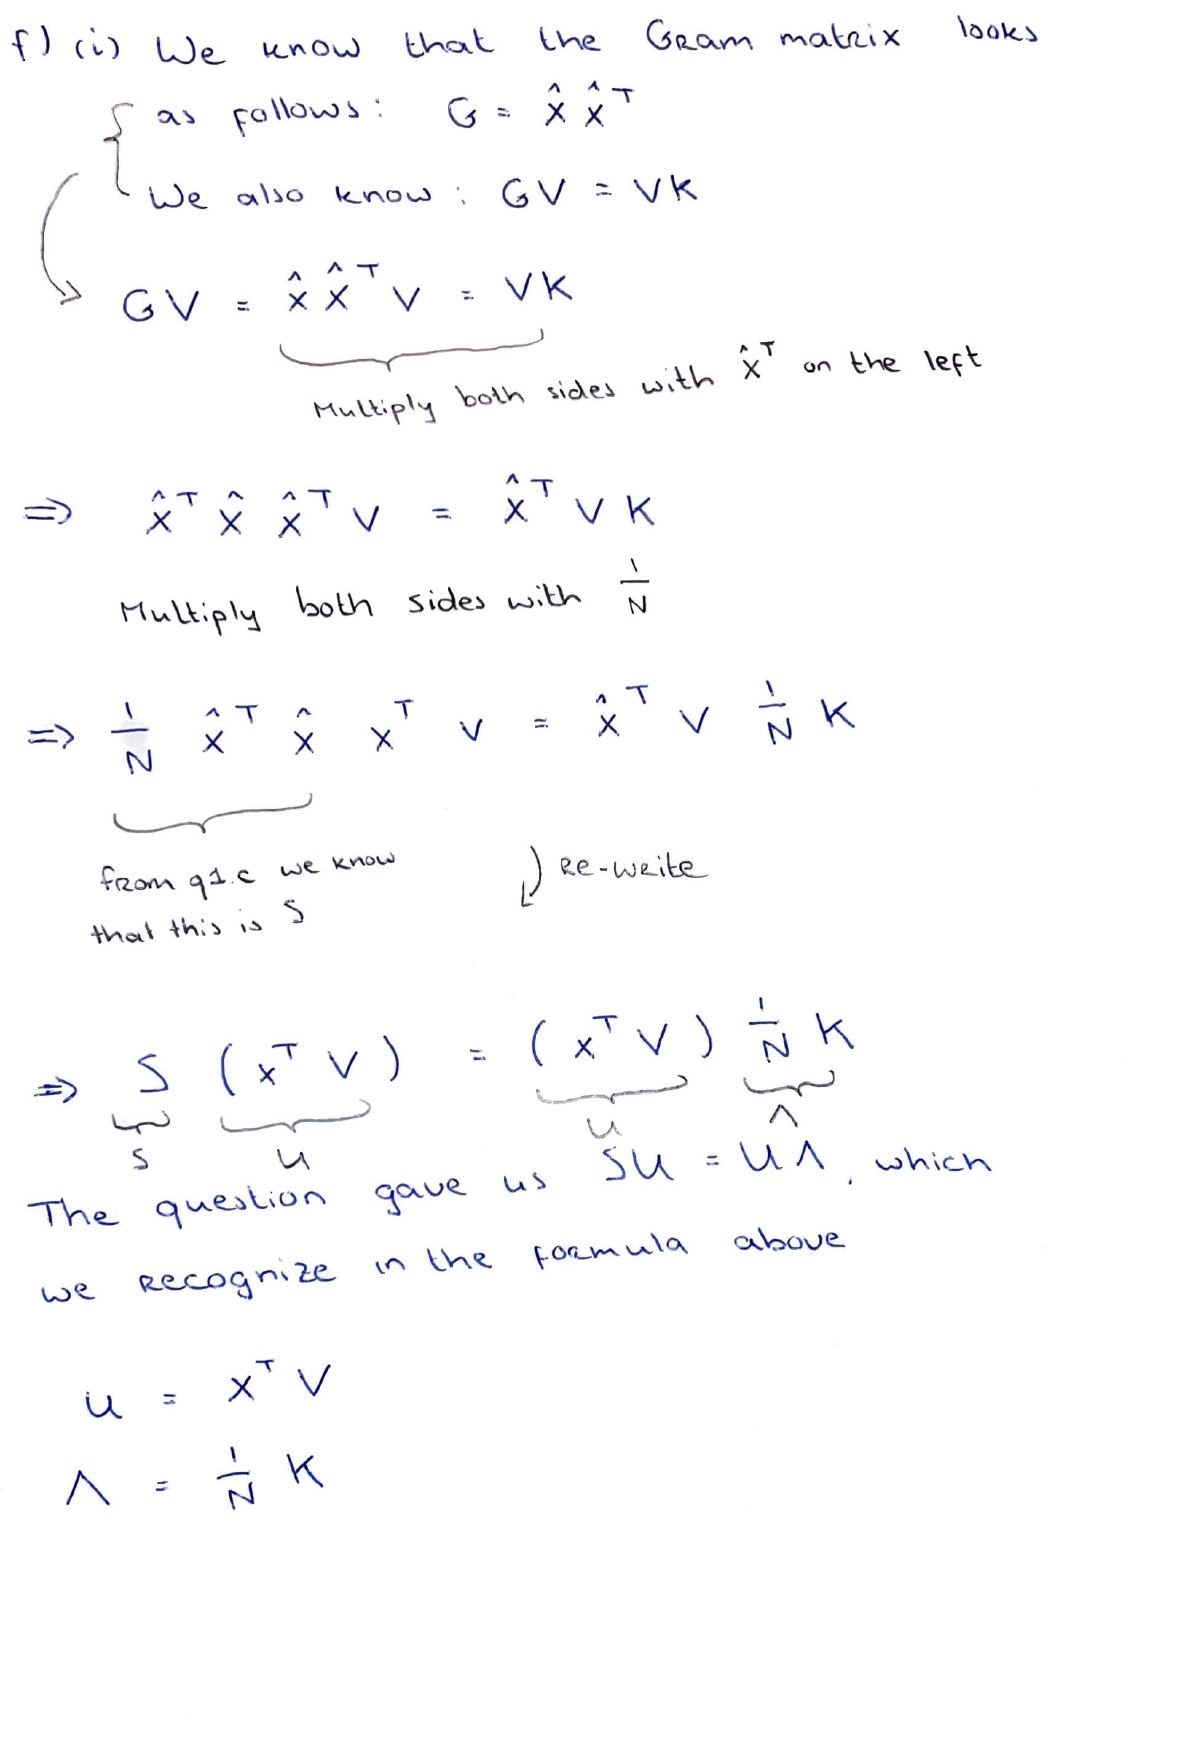 f) (i) We know that the Gram matrix looks
as follows: G = X̂ X̂ᵀ
We also know: GV = VK
GV = X̂ X̂ᵀ V = VK
Multiply both sides with X̂ᵀ on the left
=> X̂ᵀ X̂ X̂ᵀ V = X̂ᵀ V K
Multiply both sides with 1/N
=> 1/N X̂ᵀ X̂ Xᵀ V = X̂ᵀ V 1/N K
from q1.c we know
that this is S
Re-write
=> S (Xᵀ V) = (Xᵀ V) 1/N K
S U U Λ
The question gave us SU = UΛ, which
we recognize in the formula above
U = Xᵀ V
Λ = 1/N K